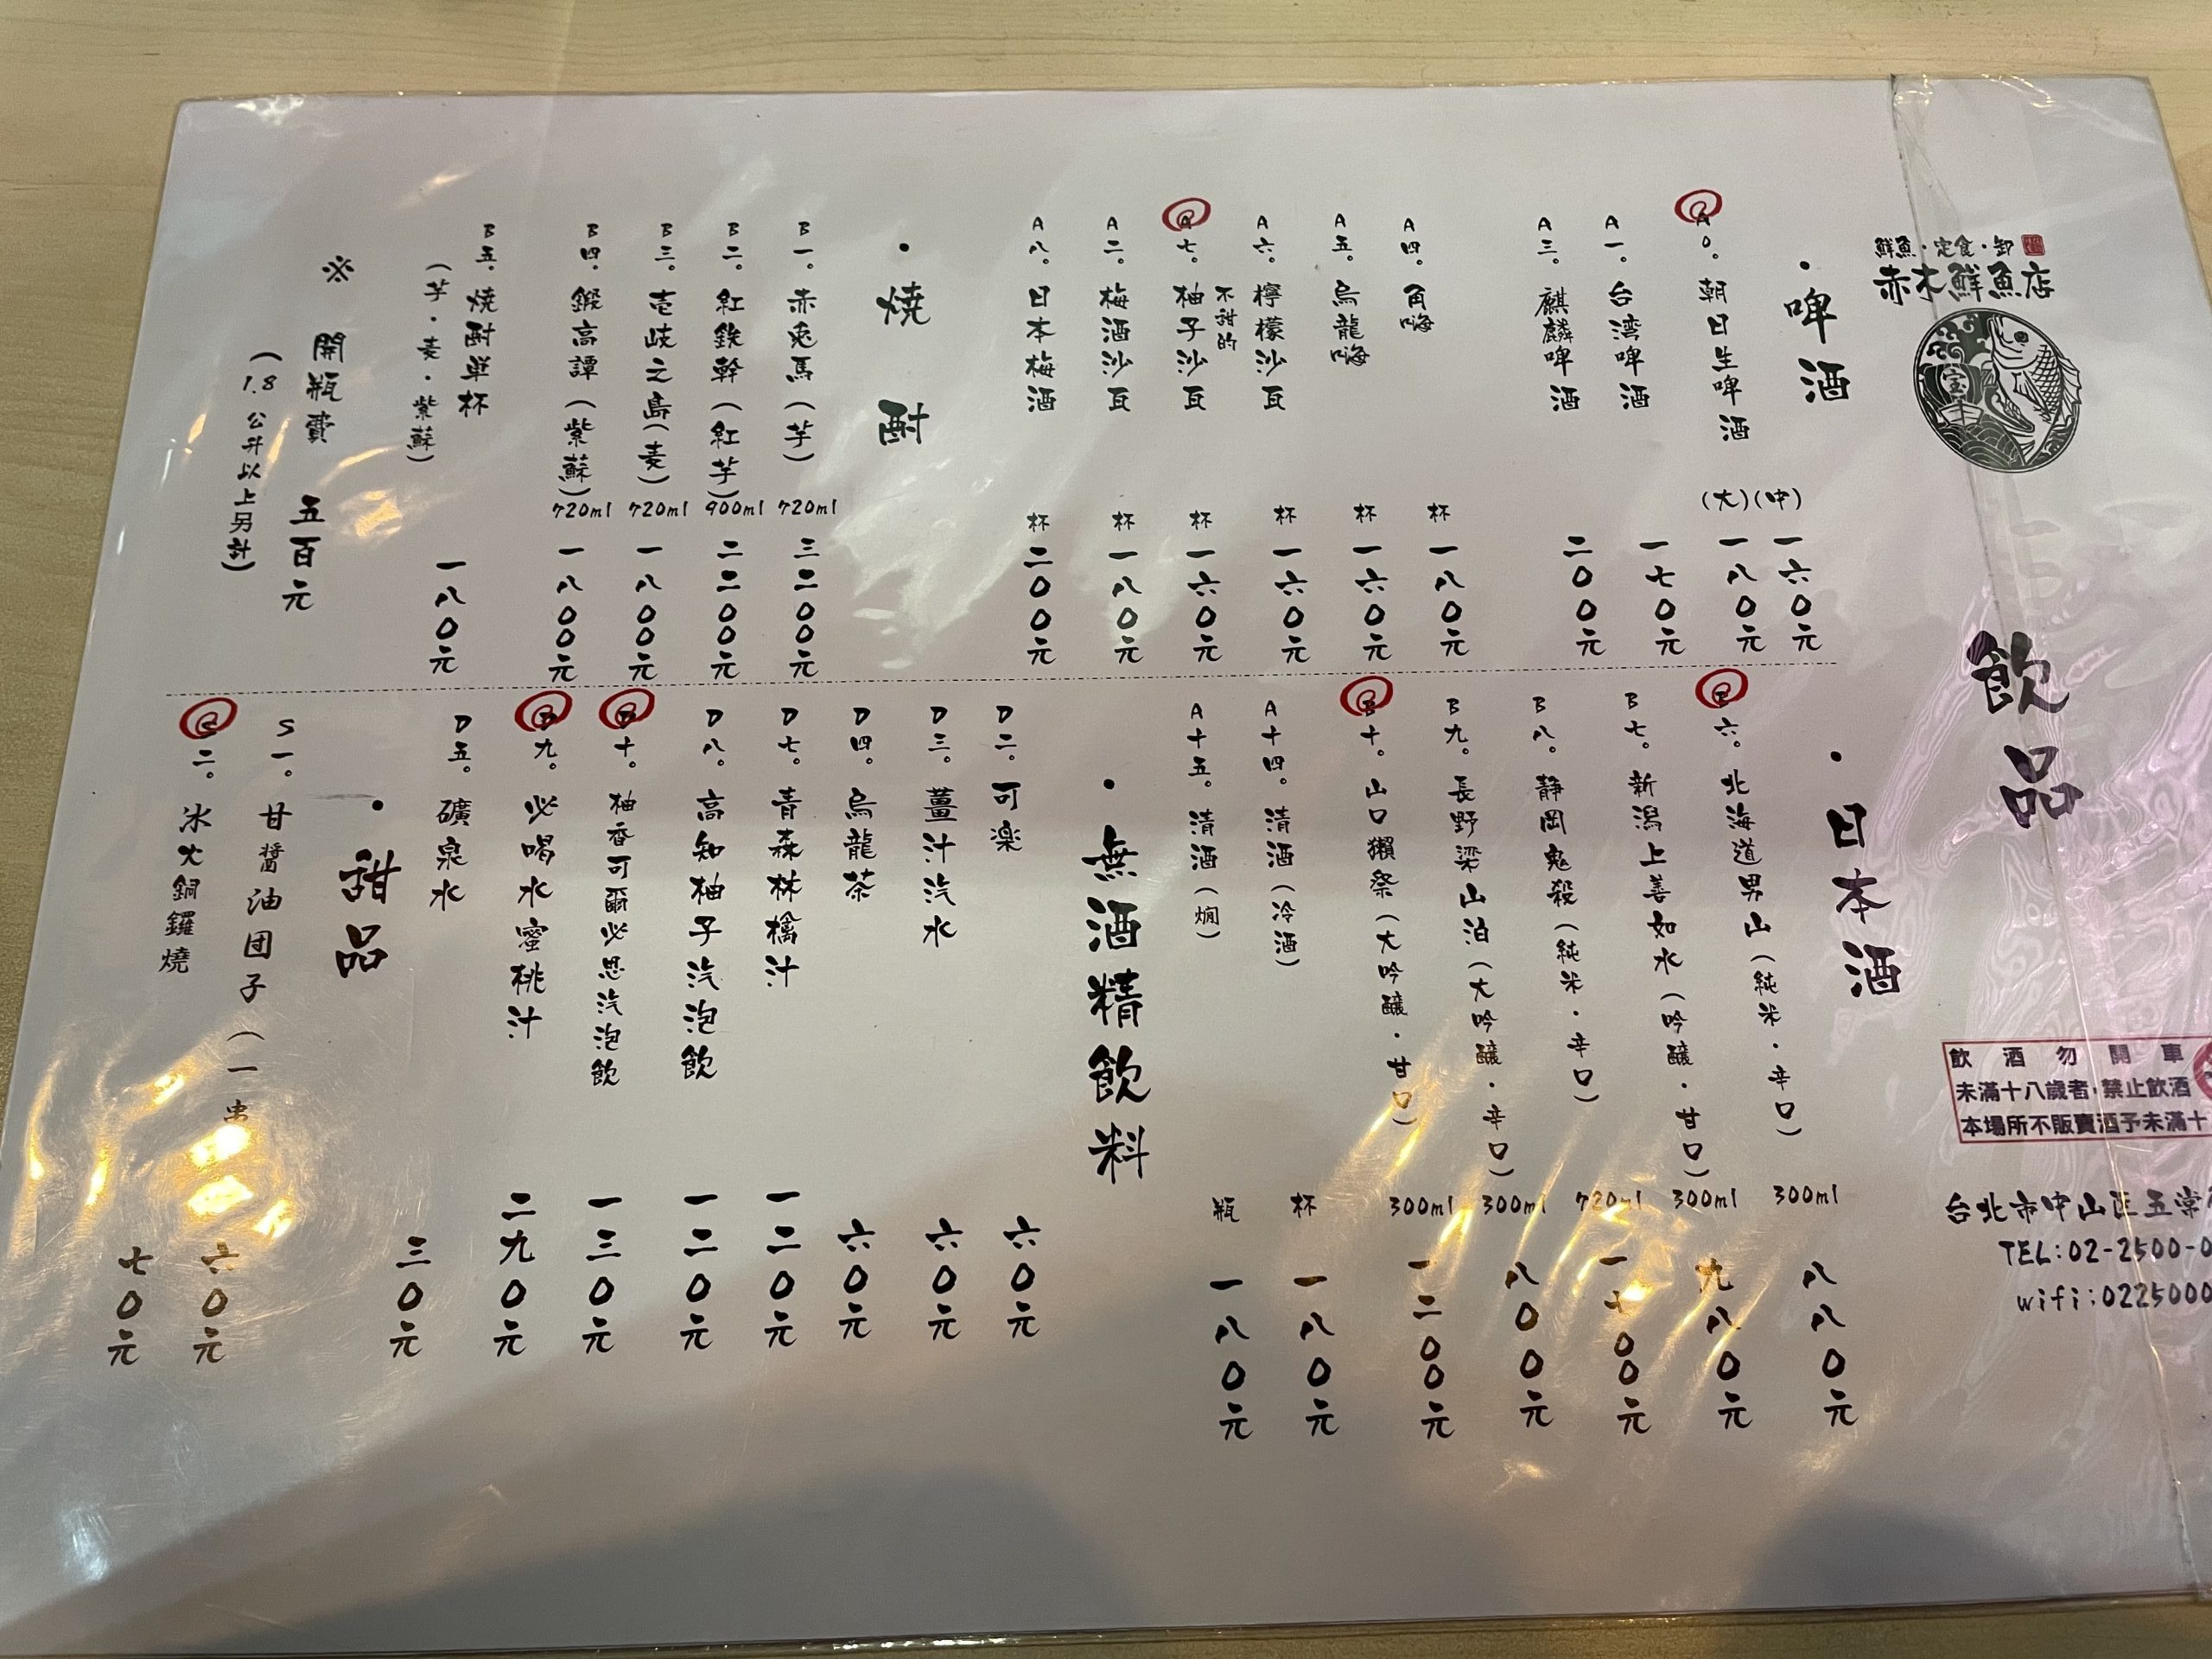 鮮魚・定食・卸
赤木鮮魚店
宝
飲品
飲酒勿開車
未滿十八歲者・禁止飲酒
本場所不販賣酒予未滿十
台北市中山区五常
TEL:02-2500-0
wifi:0225000
・啤酒
A0。朝日生啤酒 (中) 一六0元
(大) 一八0元
A一。台湾啤酒 一七0元
A三。麒麟啤酒 二00元
A四。角嗨 杯 一八0元
A五。烏龍嗨 杯 一六0元
A六。檸檬沙瓦 杯 一六0元
不甜的
A七。柚子沙瓦 杯 一六0元
A二。梅酒沙瓦 杯 一八0元
A八。日本梅酒 杯 二00元
・燒酎
B一。赤兎馬(芋) 720ml 三二00元
B二。紅鉄幹(紅芋) 900ml 二二00元
B三。壱岐之島(麦) 720ml 一八00元
B四。鍛高譚(紫蘇) 720ml 一八00元
B五。焼酎単杯 一八0元
(芋・麦・紫蘇)
※ 開瓶費 五百元
(1.8公升以上另計)
・日本酒
六。北海道男山(純米・辛口) 300ml 八八0元
B七。新潟上善如水(吟醸・甘口) 300ml 九八0元
B八。静岡鬼殺(純米・辛口) 720ml
B九。長野梁山泊(大吟醸・辛口) 300ml 八00元
B十。山口獺祭(大吟醸・甘口) 300ml 一二00元
A十四。清酒(冷酒) 杯 一八0元
A十五。清酒(燗) 瓶 一八0元
・無酒精飲料
D二。可楽 六0元
D三。薑汁汽水 六0元
D四。烏龍茶 六0元
D七。青森林檎汁 一二0元
D八。高知柚子汽泡飲 一二0元
D十。柚香可爾必思汽泡飲 一三0元
D九。必喝水蜜桃汁 二九0元
D五。礦泉水 三0元
・甜品
S一。甘醬油团子(一串 六0元
S二。冰火銅鑼燒 七0元